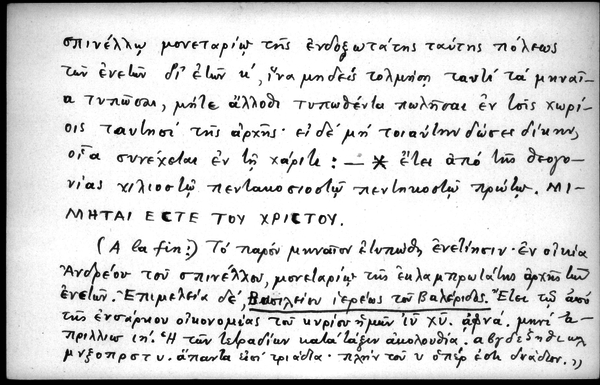 σπινέλλῳ μονεταρίῳ τῆς ἐνδοξωτάτης ταύτης πόλεως
τῶν ἐνετῶν δι' ἐτῶν κ', ἵνα μηδεὶς τολμήσῃ ταυτὶ τὰ μηναῖ-
α τυπῶσαι, μήτε ἄλλοθι τυπωθέντα πωλῆσαι ἐν τοῖς χωρί-
οις ταυτησὶ τῆς ἀρχῆς· εἰ δὲ μὴ τοιαύτην δώσει δίκην,
οἵα συνέχεται ἐν τῇ χάριτι: — ✶ ἔτει ἀπὸ τῆς θεογο-
νίας χιλιοστῷ πεντακοσιοστῷ πεντηκοστῷ πρώτῳ. ΜΙ-
ΜΗΤΑΙ ΕϹΤΕ ΤΟΥ ΧΡΙϹΤΟΥ.
(A la fin:) Τὸ παρὸν μηναῖον ἐτυπώθη ἐνετίησιν· ἐν οἰκίᾳ
Ἀνδρέου τοῦ σπινέλλου, μονεταρίῳ τῆς ἐκλαμπρωτάτης ἀρχῆς τῶν
ἐνετῶν. Ἐπιμελείᾳ δὲ, Βασιλείου ἱερέως τοῦ Βαλέριδος. Ἔτει τῷ ἀπὸ
τῆς ἐνσάρκου οἰκονομίας τοῦ κυρίου ἡμῶν ἰῦ χῦ. ͵αφνά. μηνὶ ἀ-
πριλλίῳ ιη'. Ἡ τῶν τετραδίων κατὰ τάξιν ἀκολουθία. α β γ δ ε ζ η θ ι κ λ
μ ν ξ ο π ρ σ τ υ. ἅπαντά εἰσι τριάδια· πλὴν τοῦ υ ὅπερ ἐστὶ δυάδιον.»